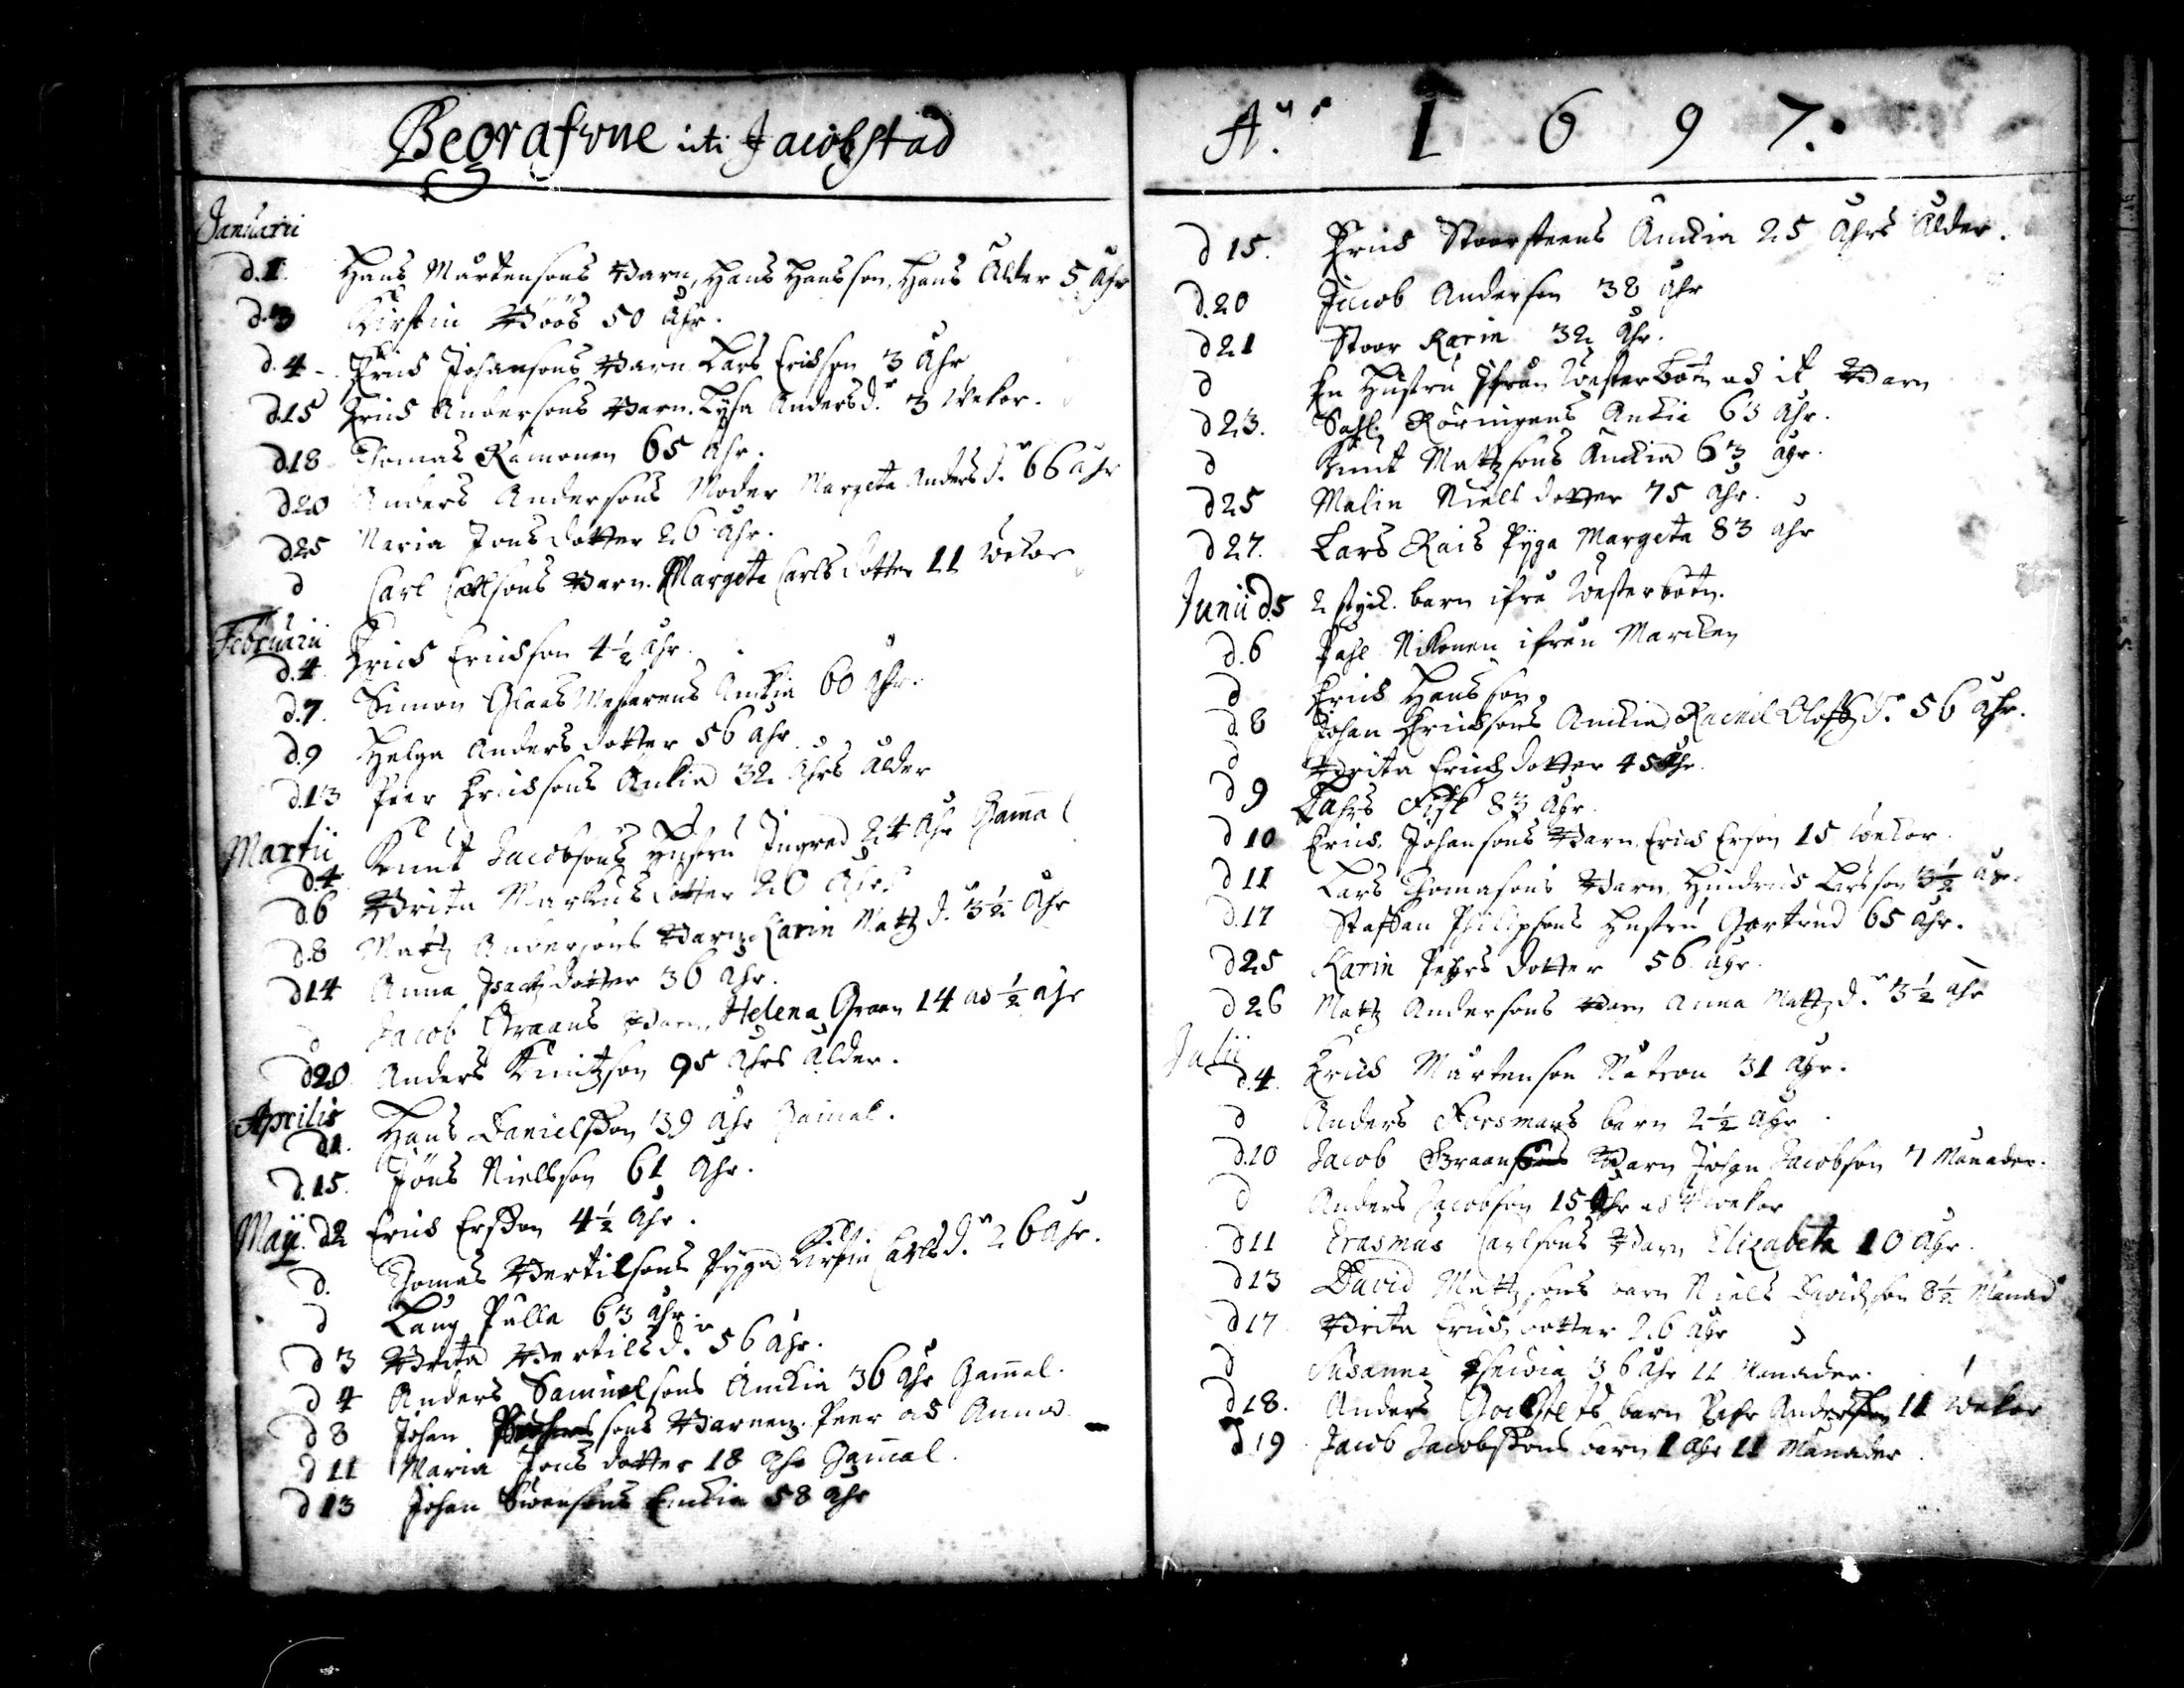 Begrafvne uti Jacobstad
Januarii
d. 1. Hans Mårtensons Barn, Hans Hansson, Hans Ålder 5 åhr
d. 3 Kirstin Böös 50 åhr.
d. 4 - Erich Johansons Barn Lars Erichson 3 åhr
d. 15 Erich Andersons Barn. Lysa Andersd:r 3 Wekor.
d. 18 Thomas Rämonen 65 åhr.
d 20 Anders Andersons Moder Margeta Andersd:r 66 åhr
d. 25 Maria Jons dotter 26 åhr.
d Carl Carlsons Barn. Margeta Carls dotter 11 wekor
Februarii
d. 4. Erich Erichson 4½ åhr.
d. 7. Simon Glaas Mestarens Änckia 60 åhr.
d. 9 Helga Anders dotter 56 åhr
d. 13 Peer Erichsons Änkia 32 åhrs ålder
Martii
d. 4 Knut Jacobsons Hustru Ingred 24 åhr Gamal
d. 6 Brita Markus dotter 20 åhrs
d. 8 Matz Andersons Barn. Karin Matz d:r 3½ åhr
d 14 Anna Isacz dotter 36 åhr.
d Jacob Graans Barn, Helena Graan 14 och ½ åhr
d 20 Anders Knutzson 95 åhrs ålder.
Aprilis
d 1. Hans Danielsson 39 åhr Gamal.
d. 15. Jöns Nielsson 61 åhr.
Maji. d 2 Erich Ersson 4½ åhr.
d. Thomas Bertilsons Pyga Kirstin Carlsd:r 26 åhr.
d Lång Pålla 63 åhr.
d 3 Brita Bertilsd:r 56 åhr.
d 4 Anders Samuelsons Änckia 36 åhr Gamal.
d 8 Johan sons Barnen. Peer och Anna
d 11 Maria Jons dotter 18 åhr Gamal.
d 13 Johan Swensons Enckia 58 åhr
A:o 1697.
d 15. Erich Stoorsteens Änckia 25 åhrs ålder.
d. 20 Jacob Anderson 38 åhr
d 21 Stoor Karin 32 åhr.
d En Hustru Ifrån Westerbotn och it Barn
d 23. Sahl. Röringens Änkia 63 åhr.
d Knut Matzsons Änckia 63 åhr.
d 25 Malin Niels dotter 75 åhr.
d 27. Lars Rais Pyga Margeta 83 åhr
Junii d. 5 2 styck. barn ifrå Westerbotn.
d. 6 Påhl Nikonen ifrån Marcken
d Erich Hansson.
d. 8 Johan Erichsons Änckia Rachel Olofz d:r 56 åhr.
d Brita Erichz dotter 45 åhr.
d 9 Lahrs Fisk 83 åhr
d 10 Erich Johansons Barn Erich Erson 15 wekor.
d 11 Lars Thomasons Barn, Hindrich Larsson 3½ åhr.
d. 17 Staffan Philipsons Hustru Gertrud 65 åhr.
d 25 Karin Pehrs dotter 56 åhr.
d 26 Matz Andersons Barn Anna Matz d:r 3½ åhr
Julii
d. 4. Erich Mårtenson 31 åhr.
d Anders Forsmans barn 2½ åhr
d. 10 Jacob Barn Johan Jacobson 7 Månader.
d Anders Jacobson 15 åhr och wekor
d 11 Erasmus Carlsons Barn Elizabeta 10 åhr.
d 13 David Matzsons barn Niels Davidzson 8½ Månad
d 17 Brita Erichz dotter 26 åhr
d Susanna 36 åhr 11 Månader.
d 18. Anders barn Pehr Anderson 11 wekor
d 19 Jacob Jacobssons barn 1 åhr 11 Månader.